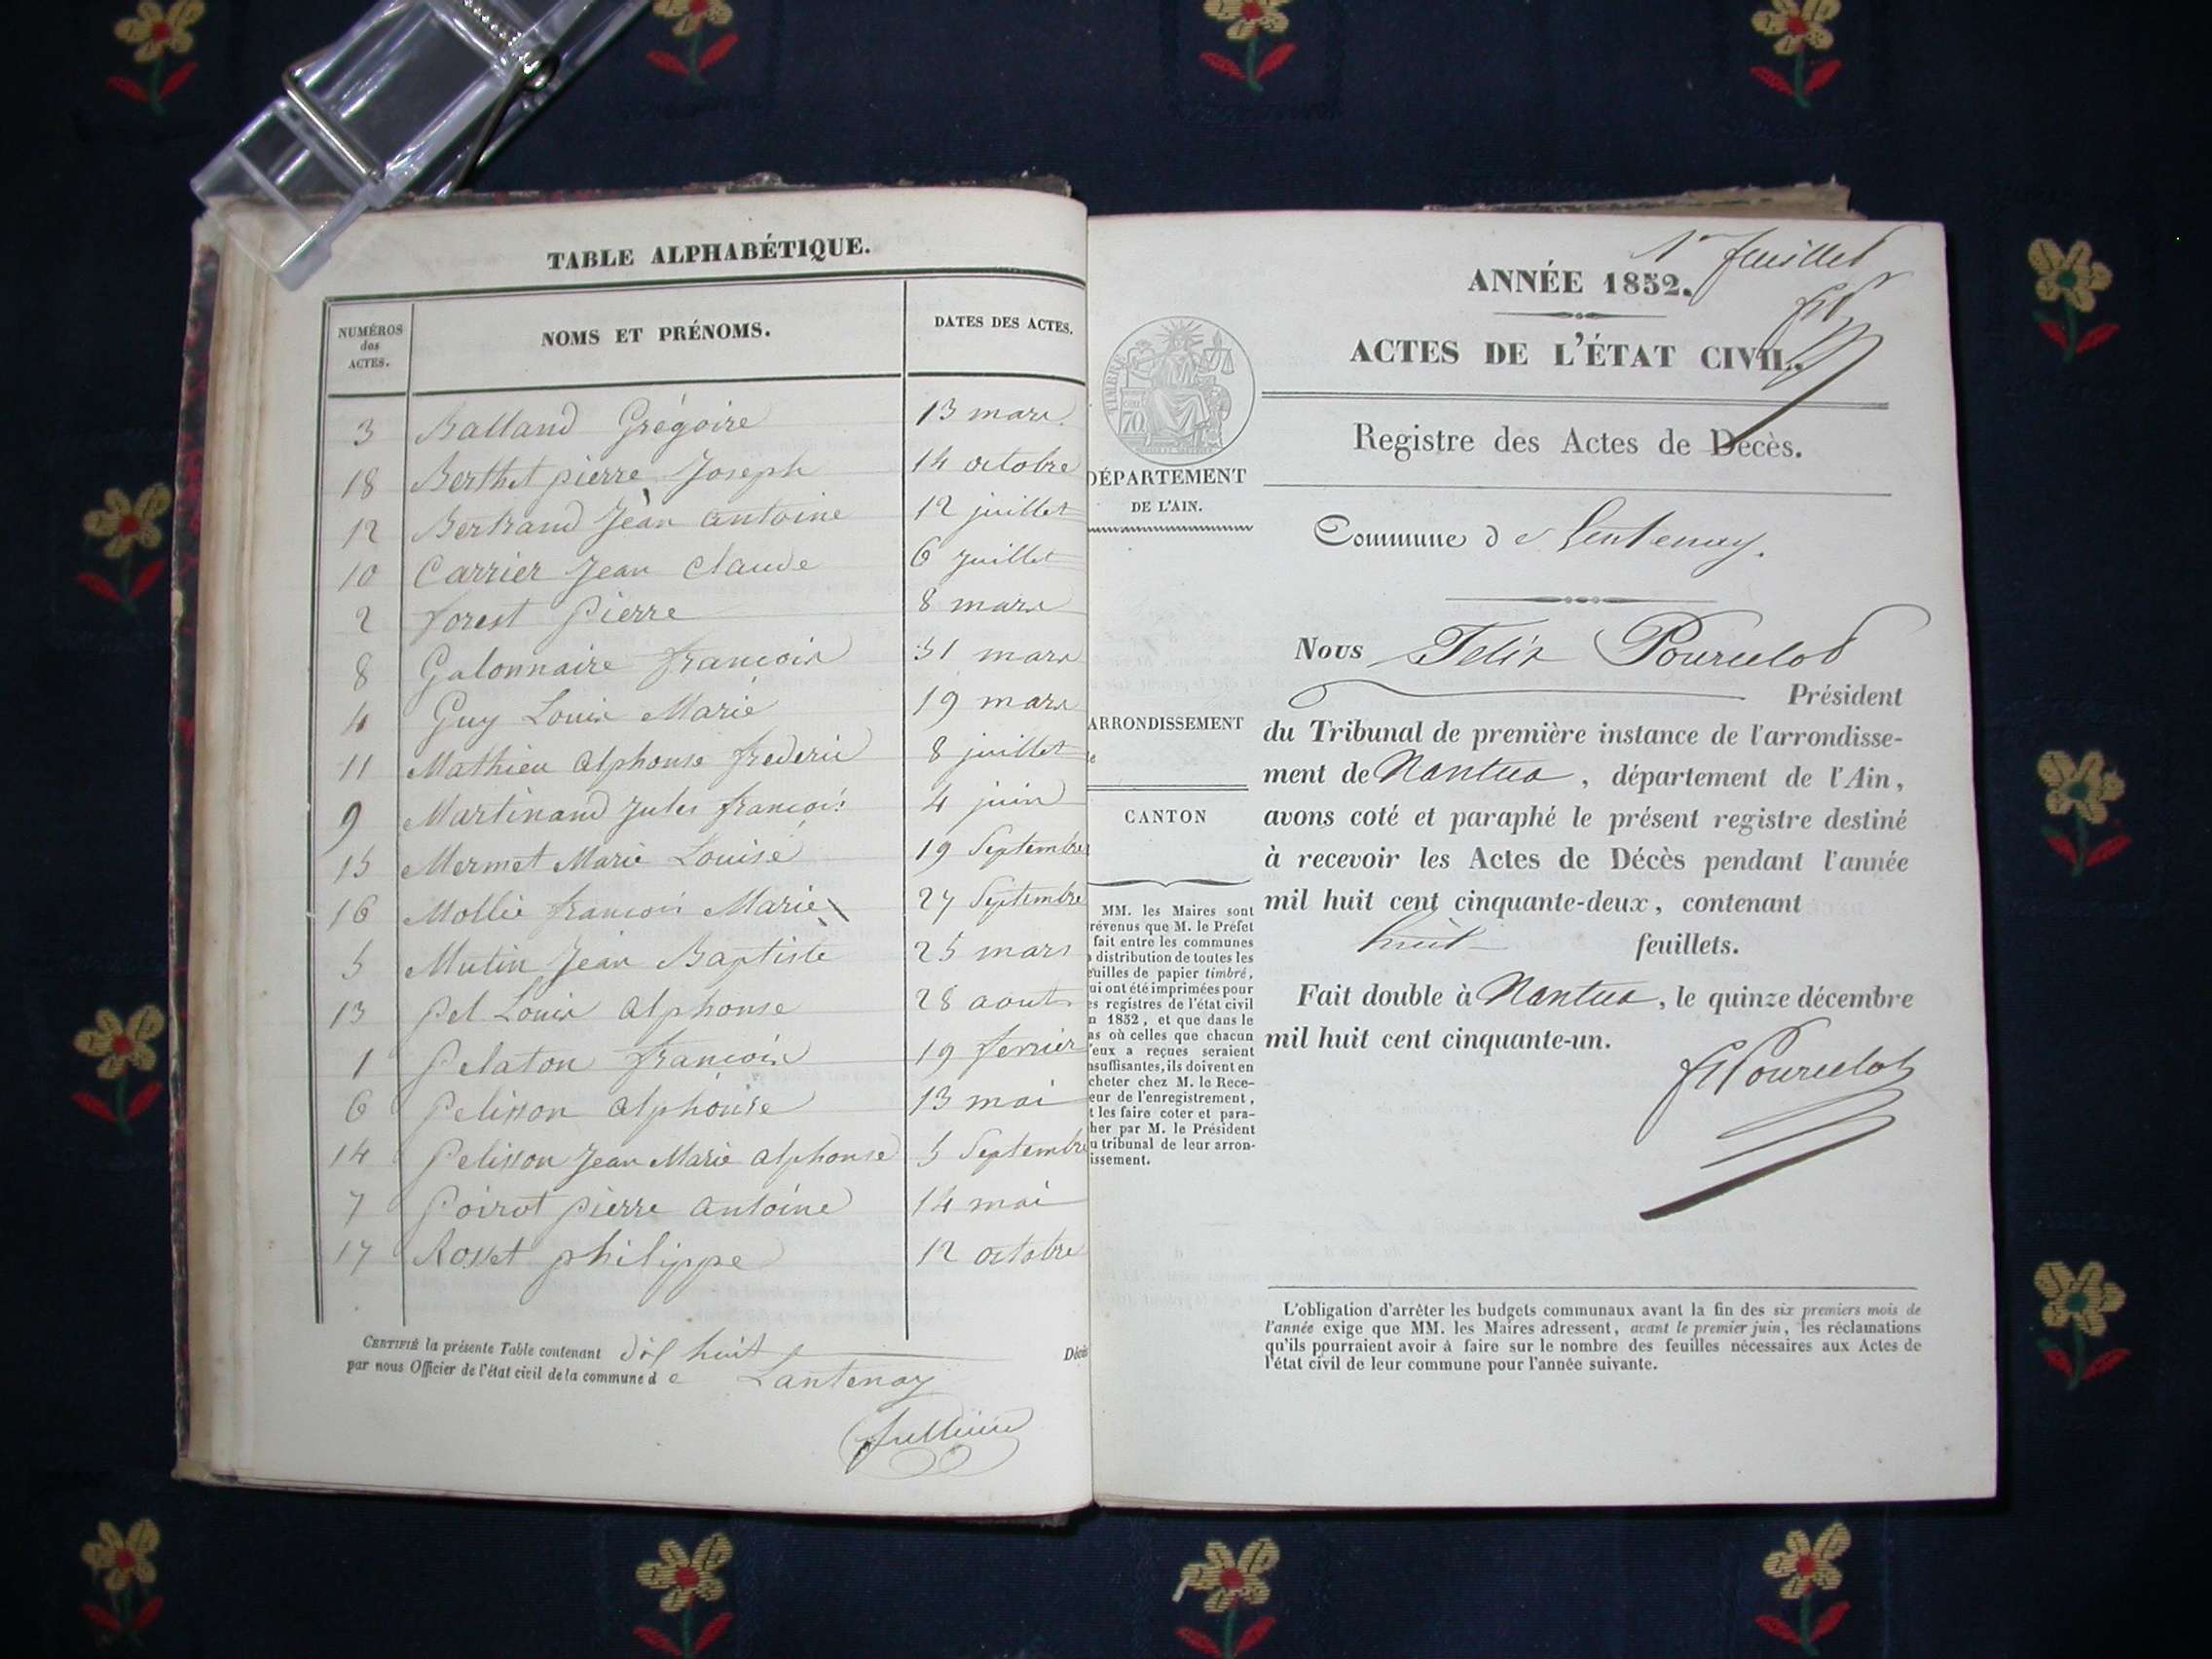 TABLE ALPHABÉTIQUE.
NUMÉROS des ACTES. NOMS ET PRÉNOMS. DATES DES ACTES.
3 Balland Grégoire 13 mars
18 Berthet pierre Joseph 14 octobre
12 Bertrand Jean antoine 12 juillet
10 Carrier Jean Claude 6 Juillet
2 forest Pierre 8 mars
8 Galonnaire francois 31 mars
4 Guy Louis Marie 19 mars
11 Mathieu alphonse frederic 8 juillet
9 Martinand Jules francois 4 juin
15 Mermet Marie Louise 19 Septembre
16 Mollie francois Marie 27 Septembre
5 Mutin Jean Baptiste 25 mars
13 Pel Louis alphonse 28 aout
1 Pelaton francois 19 fevrier
6 Pelisson alphonse 13 mai
14 Pelisson Jean Marie alphonse 5 Septembre
7 Poirot pierre antoine 14 mai
17 Rosset philippe 12 octobre
CERTIFIÉ la présente Table contenant dix huit Décès
par nous Officier de l'état civil de la commune d e Lantenay
1er feuillet
ANNÉE 1852.
ACTES DE L'ÉTAT CIVIL.
Registre des Actes de Decès.
Commune d e Lentenay.
TIMBRE
70
DÉPARTEMENT
DE L'AIN.
ARRONDISSEMENT
CANTON
MM. les Maires sont
révenus que M. le Préfet
fait entre les communes
distribution de toutes les
euilles de papier timbré,
ui ont été imprimées pour
es registres de l'état civil
n 1852, et que dans le
as où celles que chacun
'eux a reçues seraient
nsuffisantes, ils doivent en
cheter chez M. le Rece-
eur de l'enregistrement,
t les faire coter et para-
her par M. le Président
u tribunal de leur arron-
issement.
Nous Felix Pourcelot
Président
du Tribunal de première instance de l'arrondisse-
ment de Nantua, département de l'Ain,
avons coté et paraphé le présent registre destiné
à recevoir les Actes de Décès pendant l'année
mil huit cent cinquante-deux, contenant
huit feuillets.
Fait double à Nantua, le quinze décembre
mil huit cent cinquante-un.
F Pourcelot
L'obligation d'arrêter les budgets communaux avant la fin des six premiers mois de
l'année exige que MM. les Maires adressent, avant le premier juin, les réclamations
qu'ils pourraient avoir à faire sur le nombre des feuilles nécessaires aux Actes de
l'état civil de leur commune pour l'année suivante.